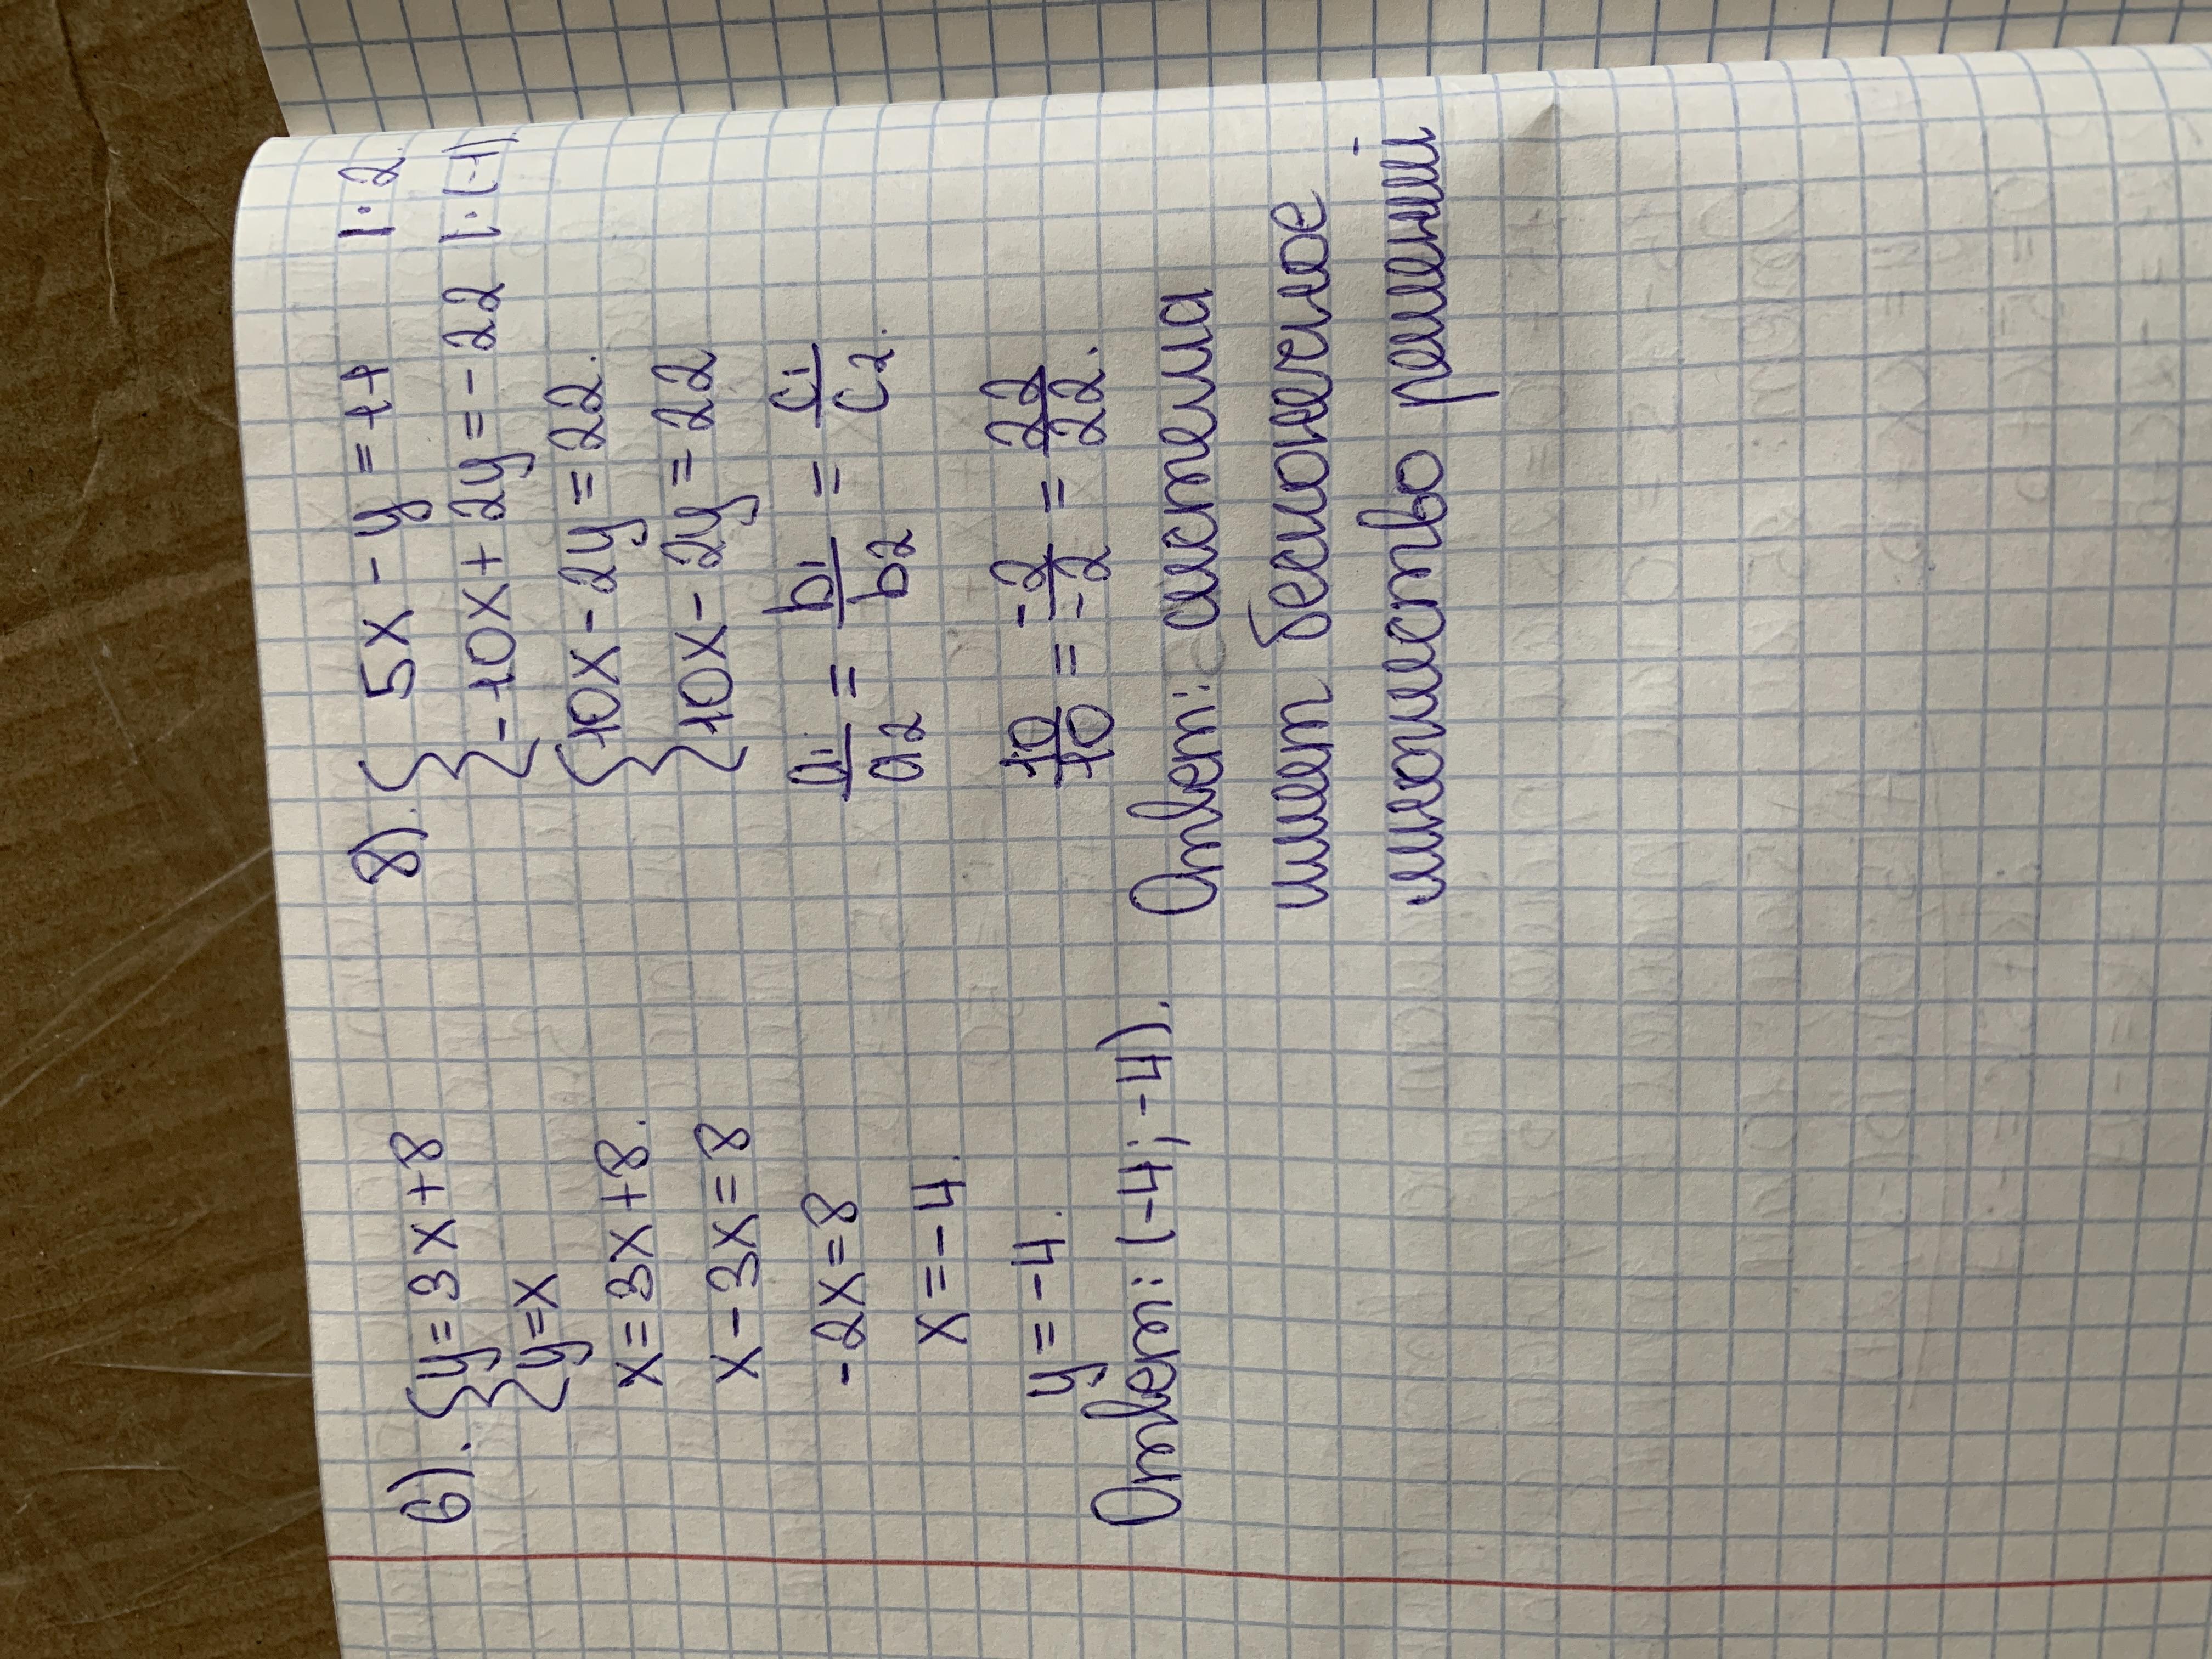 6). {y=3x+8
{y=x
x=3x+8.
x-3x=8
-2x=8
x=-4.
y=-4.
Ответ: (-4; -4).
8). { 5x-y=11 |·2.
{-10x+2y=-22 |·(-1)
{10x-2y=22.
{10x-2y=22
a₁/a₂ = b₁/b₂ = c₁/c₂.
10/10 = -2/-2 = 22/22.
Ответ: система
имеет бесконечное
множество решений